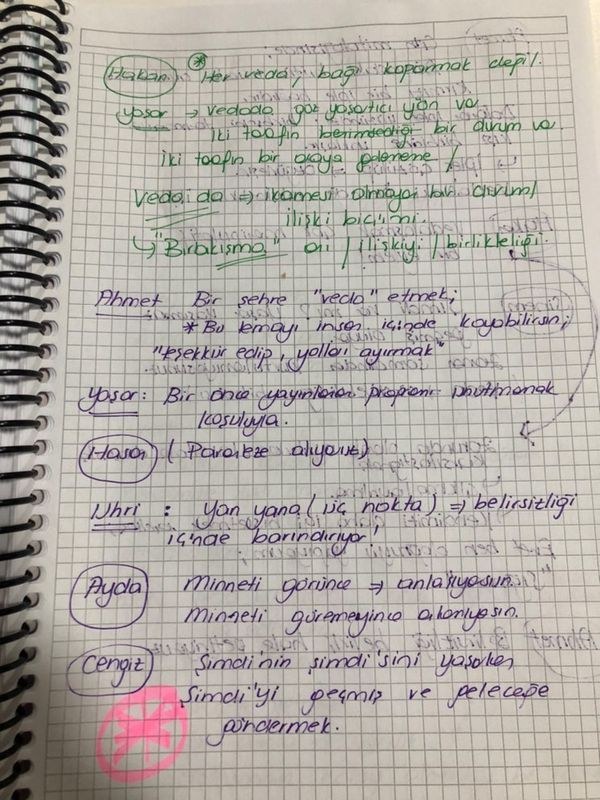 Hakan * Her veda, bağı koparmak değil.
Yaşar → vedada göz yaşartıcı yön var
iki tarafın benimsediği bir durum var
iki tarafın bir araya gelmeme /
Vedai da ⇒ ikamesi olmayan durum/
ilişki biçimi.
↳ "Bırakışma" anı / ilişkiyi / birlikteliği.
Ahmet Bir şehre "veda" etmek;
* Bu temayı insan içinde koyabilirsin;
"teşekkür edip, yolları ayırmak"
Yaşar: Bir önce yayınlanan programı unutmamak
koşuluyla.
Hasan (Paranteze alıyoruz)
Nhri : Yan yana (üç nokta) ⇒ belirsizliği
içinde barındırıyor!
Ayda Minneti görünce ⇒ anlaşıyosun.
Minneti göremeyince
Cengiz Şimdi'nin şimdi'sini yaşarken
Şimdi'yi geçmiş ve geleceğe
göndermek.